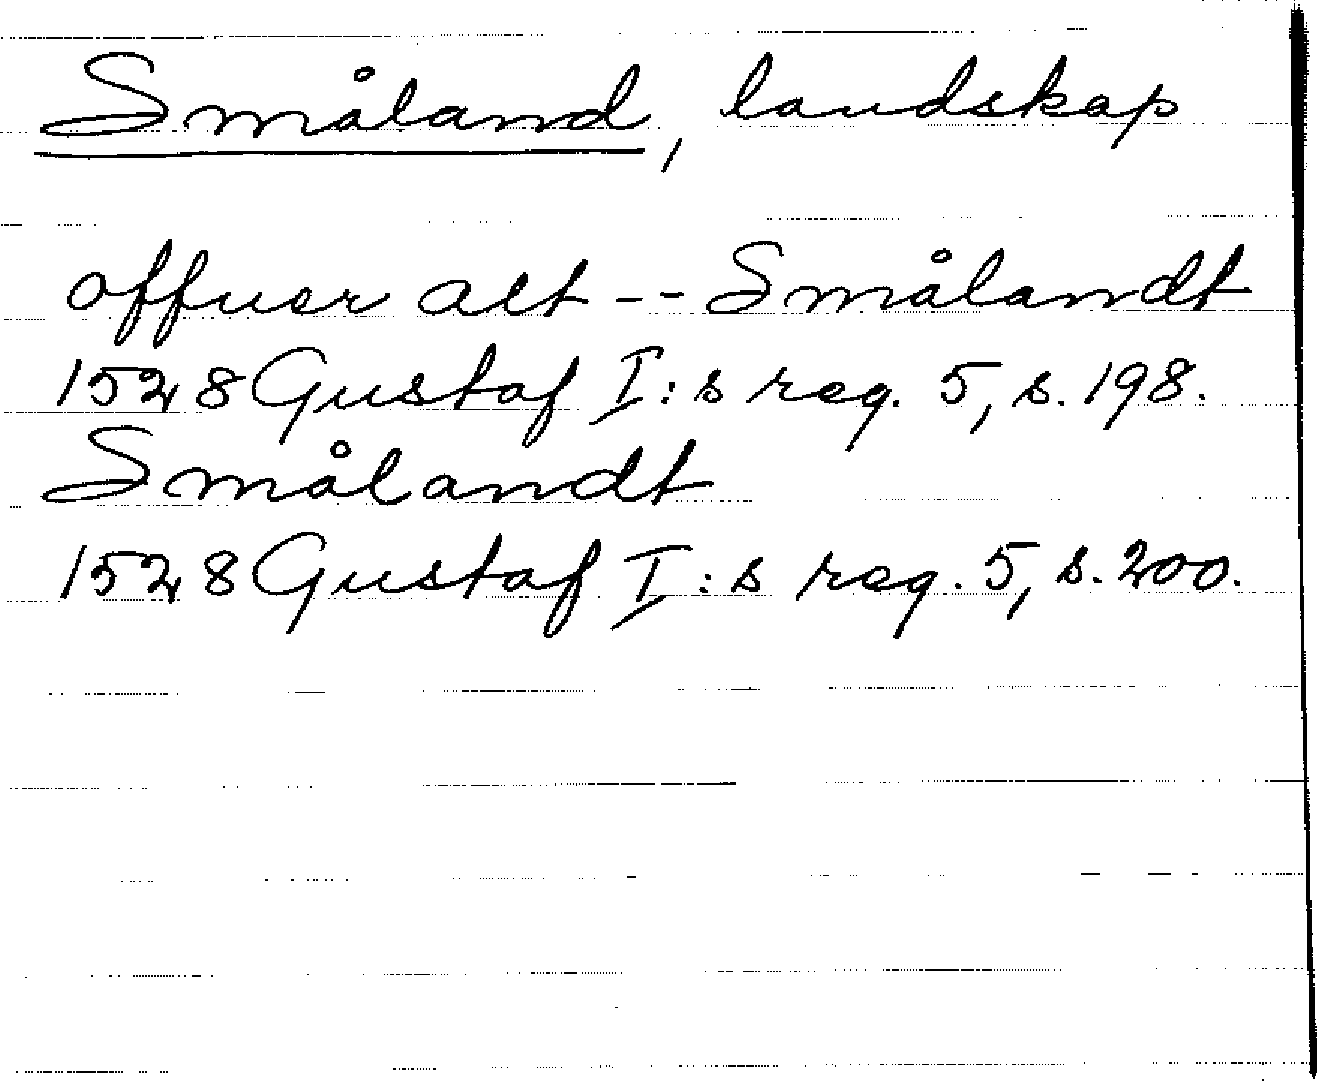 Småland, landskap
offuer alt -- Smålandt
1528 Gustaf I:s reg. 5, s. 198.
Smålandt
1528 Gustaf I:s reg. 5, s. 200.